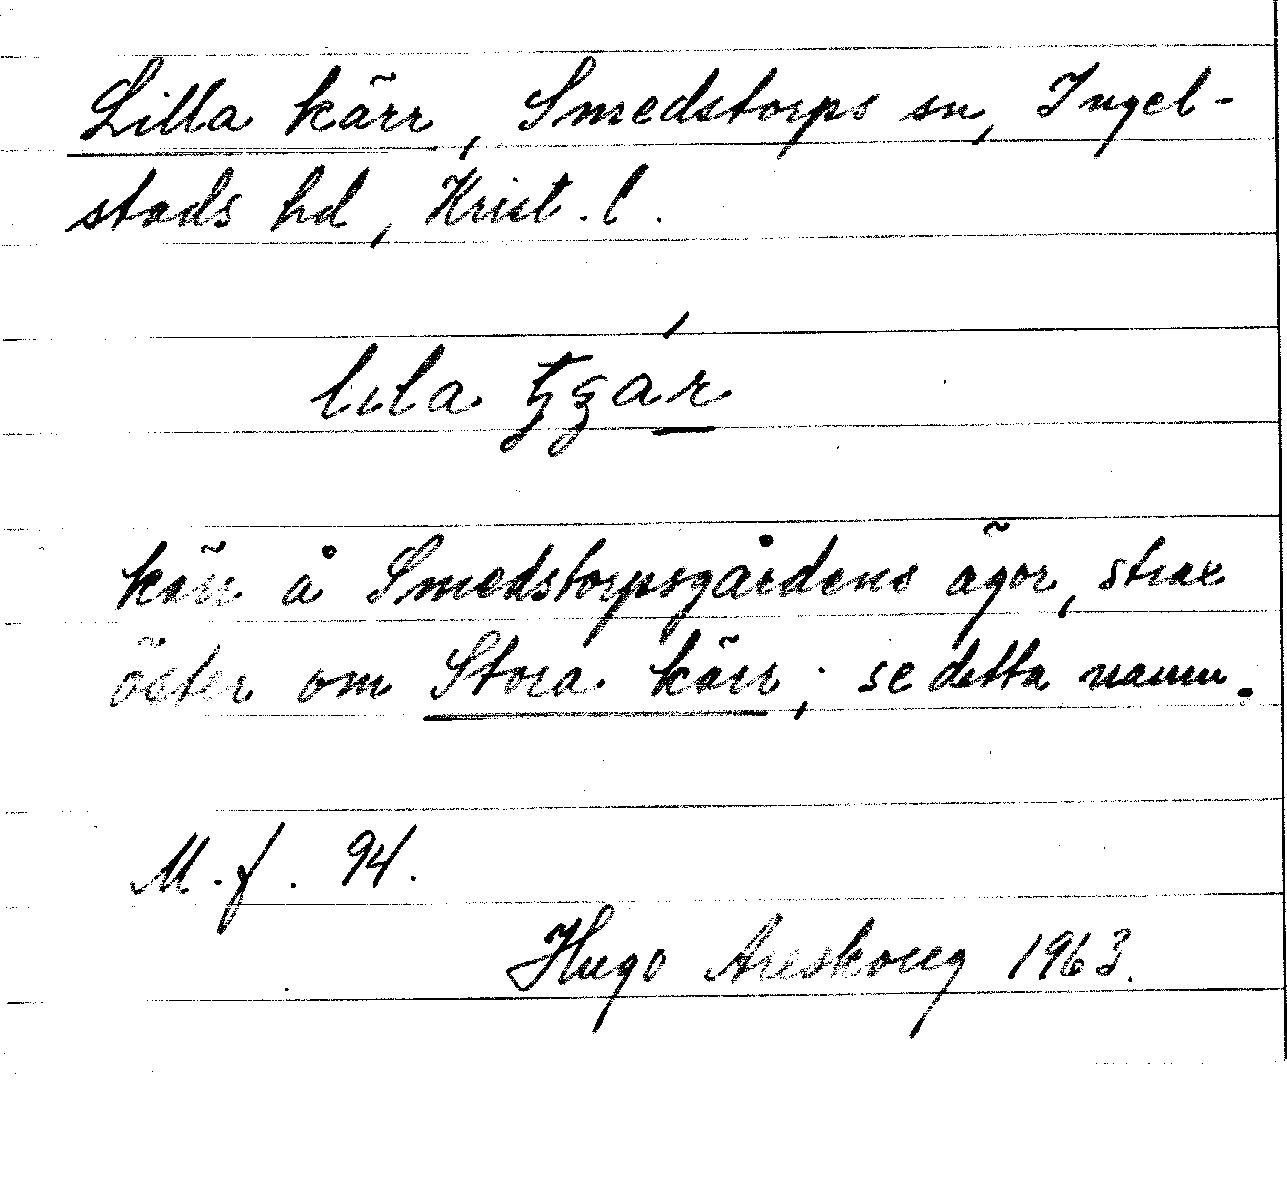 Lilla kärr, Smedstorps sn, Ingel-
stads hd, Krist. l.
kärr å Smedstorpsgårdens ägor, strax
öster om Stora kärr; se detta namn.
M.f. 94.
Hugo Areskoug 1963.